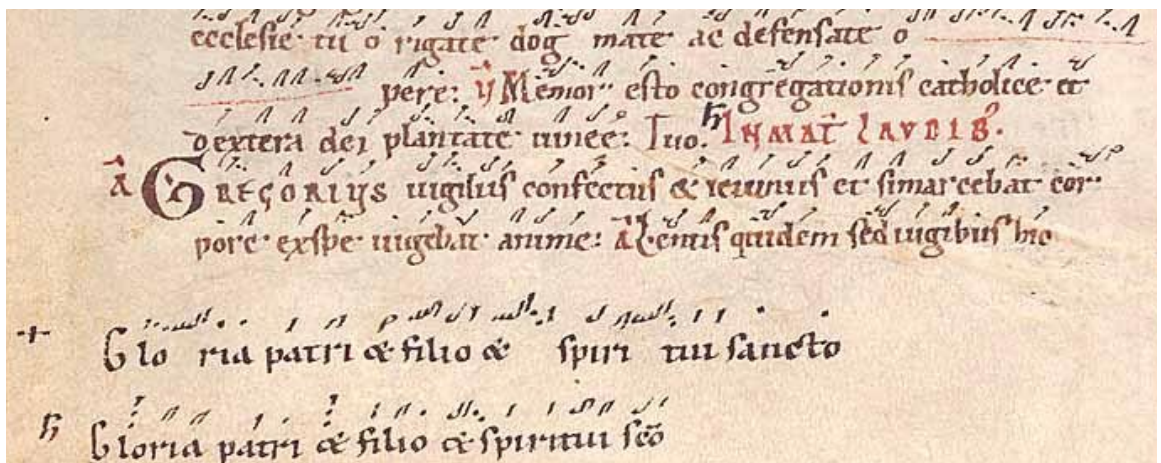 ecclesie tu o rigate dog mate ac defensate o
pere: V Memor esto congregationis catholice et
dextera dei plantate uinee: Tuo. IN MAT LAVDIB.
A GREGORIUS uigiliis confectus & ieiuniis et si marcebat cor
pore ex spe uigebat anime: A Lenis quidem sed
Glo ria patri & filio & spiri tui sancto
Gloria patri & filio & spiritui sco